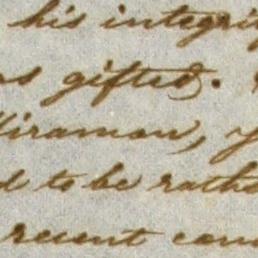 his integrity
as gifted.
Miramon, y
d to be rathe
recent con